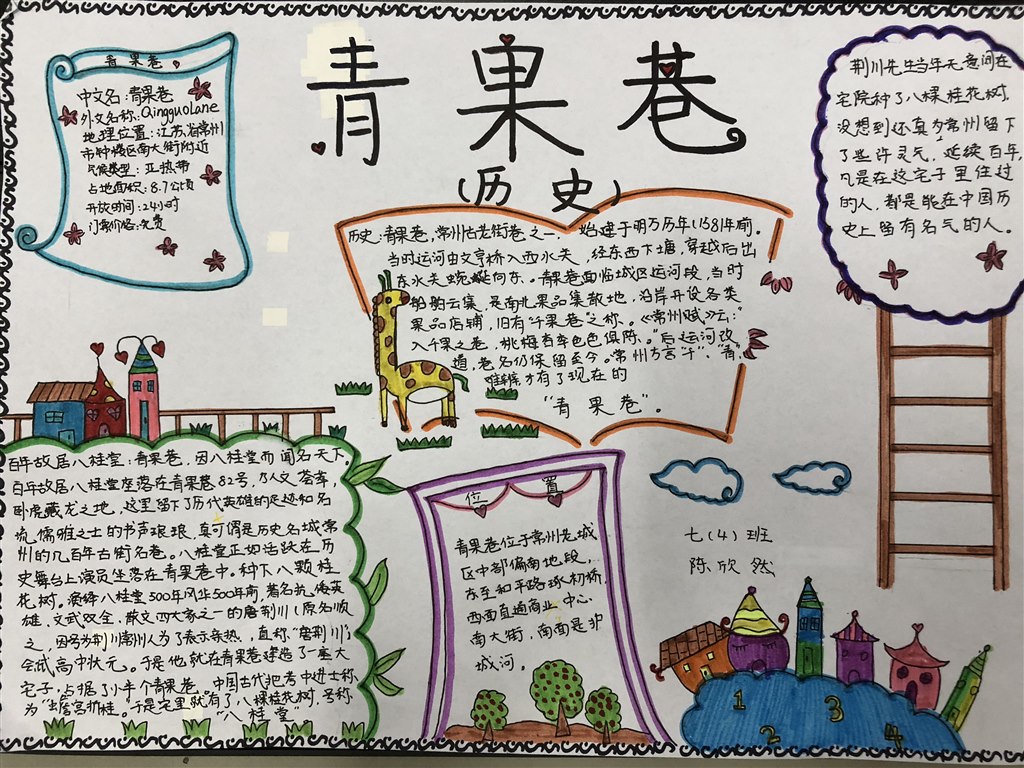 青果巷
(历史)
青果巷
中文名:青果巷
外文名称:QingguoLane
地理位置:江苏省常州
市钟楼区南大街附近
气候类型:亚热带
占地面积:8.7公顷
开放时间:24小时
门票价格:免费
历史:青果巷,常州古老街巷之一,始建于明万历年(1581年)前。
当时运河由文亨桥入西水关,经东西下塘,穿越后出
东水关蜿蜒向东。青果巷面临城区运河段,当时
船舶云集,是南北果品集散地,沿岸开设各类
果品店铺,旧有“千果巷”之称。《常州赋》云:“
入千果之巷,桃梅杏李色色俱陈。”后运河改
道,巷名仍保留至今。常州方言“千”、“青”,
难辨才有了现在的
“青果巷”。
荆川先生当年无意间在
宅院种了八棵桂花树,
没想到还真为常州留下
了些许灵气,延续百年,
凡是在这宅子里住过
的人,都是能在中国历
史上留有名气的人。
百年故居八桂堂:青果巷,因八桂堂而闻名天下。
百年故居八桂堂座落在青果巷82号,乃人文荟萃,
卧虎藏龙之地,这里留下了历代英雄的足迹和名
流,儒雅之士的书声琅琅,真可谓是历史名城常
州的几百年古街名巷。八桂堂正如活跃在历
史舞台上演员坐落在青果巷中。种下八颗桂
花树。演绎八桂堂500年风华500年前,著名抗倭英
雄,文武双全,散文四大家之一的唐荆川(原名顺
之,因号为荆川常州人为了表示亲热,直称“唐荆川”)
会试高中状元。于是他就在青果巷建造了一座大
宅子,占据了小半个青果巷。中国古代把考中进士称
为“蟾宫折桂”。于是宅里就有了八棵桂花树,号称
“八桂堂”
位置
青果巷位于常州老城
区中部偏南地段,
东至和平路琢初桥,
西面直通商业中心
南大街,南面是护
城河。
七(4)班
陈欣然
1
2
3
4